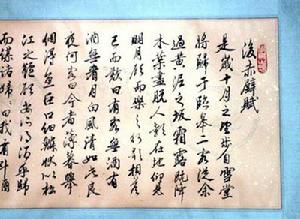 後赤壁賦
是歲十月之望步自雪堂
將歸于臨皋二客從余
過黃泥之坂霜露既降
木葉盡脫人影在地仰見
明月顧而樂之行歌相答
已而歎曰有客無酒有
酒無肴月白風清如此良
夜何客曰今者薄暮舉
網得魚巨口細鱗狀似松
江之鱸顧安所得酒乎歸
而謀諸婦婦曰我有斗酒